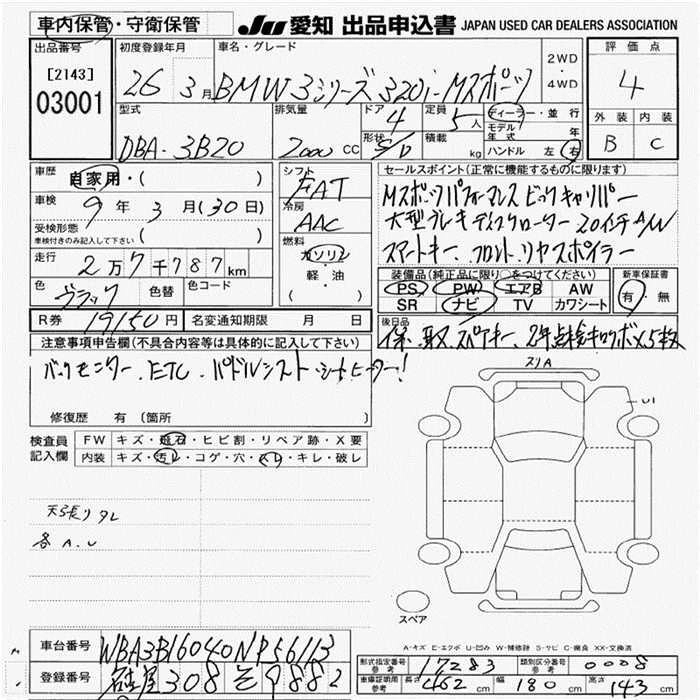 車内保管・守衛保管 JU 愛知 出品申込書 JAPAN USED CAR DEALERS ASSOCIATION
出品番号 初度登録年月 車名・グレード 2WD・4WD 評価点
[2143] 03001 26 3月 BMW 3シリーズ 320i-Mスポーツ 4
型式 排気量 ドア 4 定員 5人 ディーラー・並行 外装 内装
DBA-3B20 2000cc 形状 S/D 積載 kg モデル年式 年 B C
ハンドル 左 右
車歴 自家用・( ) シフト FAT セールスポイント(正常に機能するものに限ります)
車検 9年3月(30日) 冷房 AAC Mスポーツパフォーマンス ビックキャリパー
受検形態 車検付きのみ記入して下さい ( ) 燃料 ガソリン 軽・油 ( ) 大型ブレーキディスクローター 20インチA/W
走行 2万7千787km スマートキー、フロント、リヤスポイラー
色 ブラック 色替 色コード 装備品(純正品に限り○をつけてください) 新車保証書
PS PW エアB AW 有・無
SR ナビ TV カワシート
R券 19150円 名変通知期限 月 日 後日品 保、取、スペアキー、
注意事項申告欄(不具合内容等は具体的に記入して下さい)
バックモニター、ETC、パドルシフト、シートヒーター!
スリA
U1
修復歴 有(箇所 )
検査員記入欄 FW キズ・飛石・ヒビ割・リペア跡・X要
内装 キズ・汚レ・コゲ・穴・スレ・キレ・破レ
天張りタレ
各A.U
スペア
A-キズ E-エクボ U-凹み W-補修跡 S-サビ C-腐食 XX-交換済
車台番号 WBA3B16040NP56113 形式指定番号 参考 17283 類別区分番号 参考 0008
登録番号 名古屋 308 そ 9882 車庫証明用 参考 長さ 462cm 幅 180cm 高さ 143cm